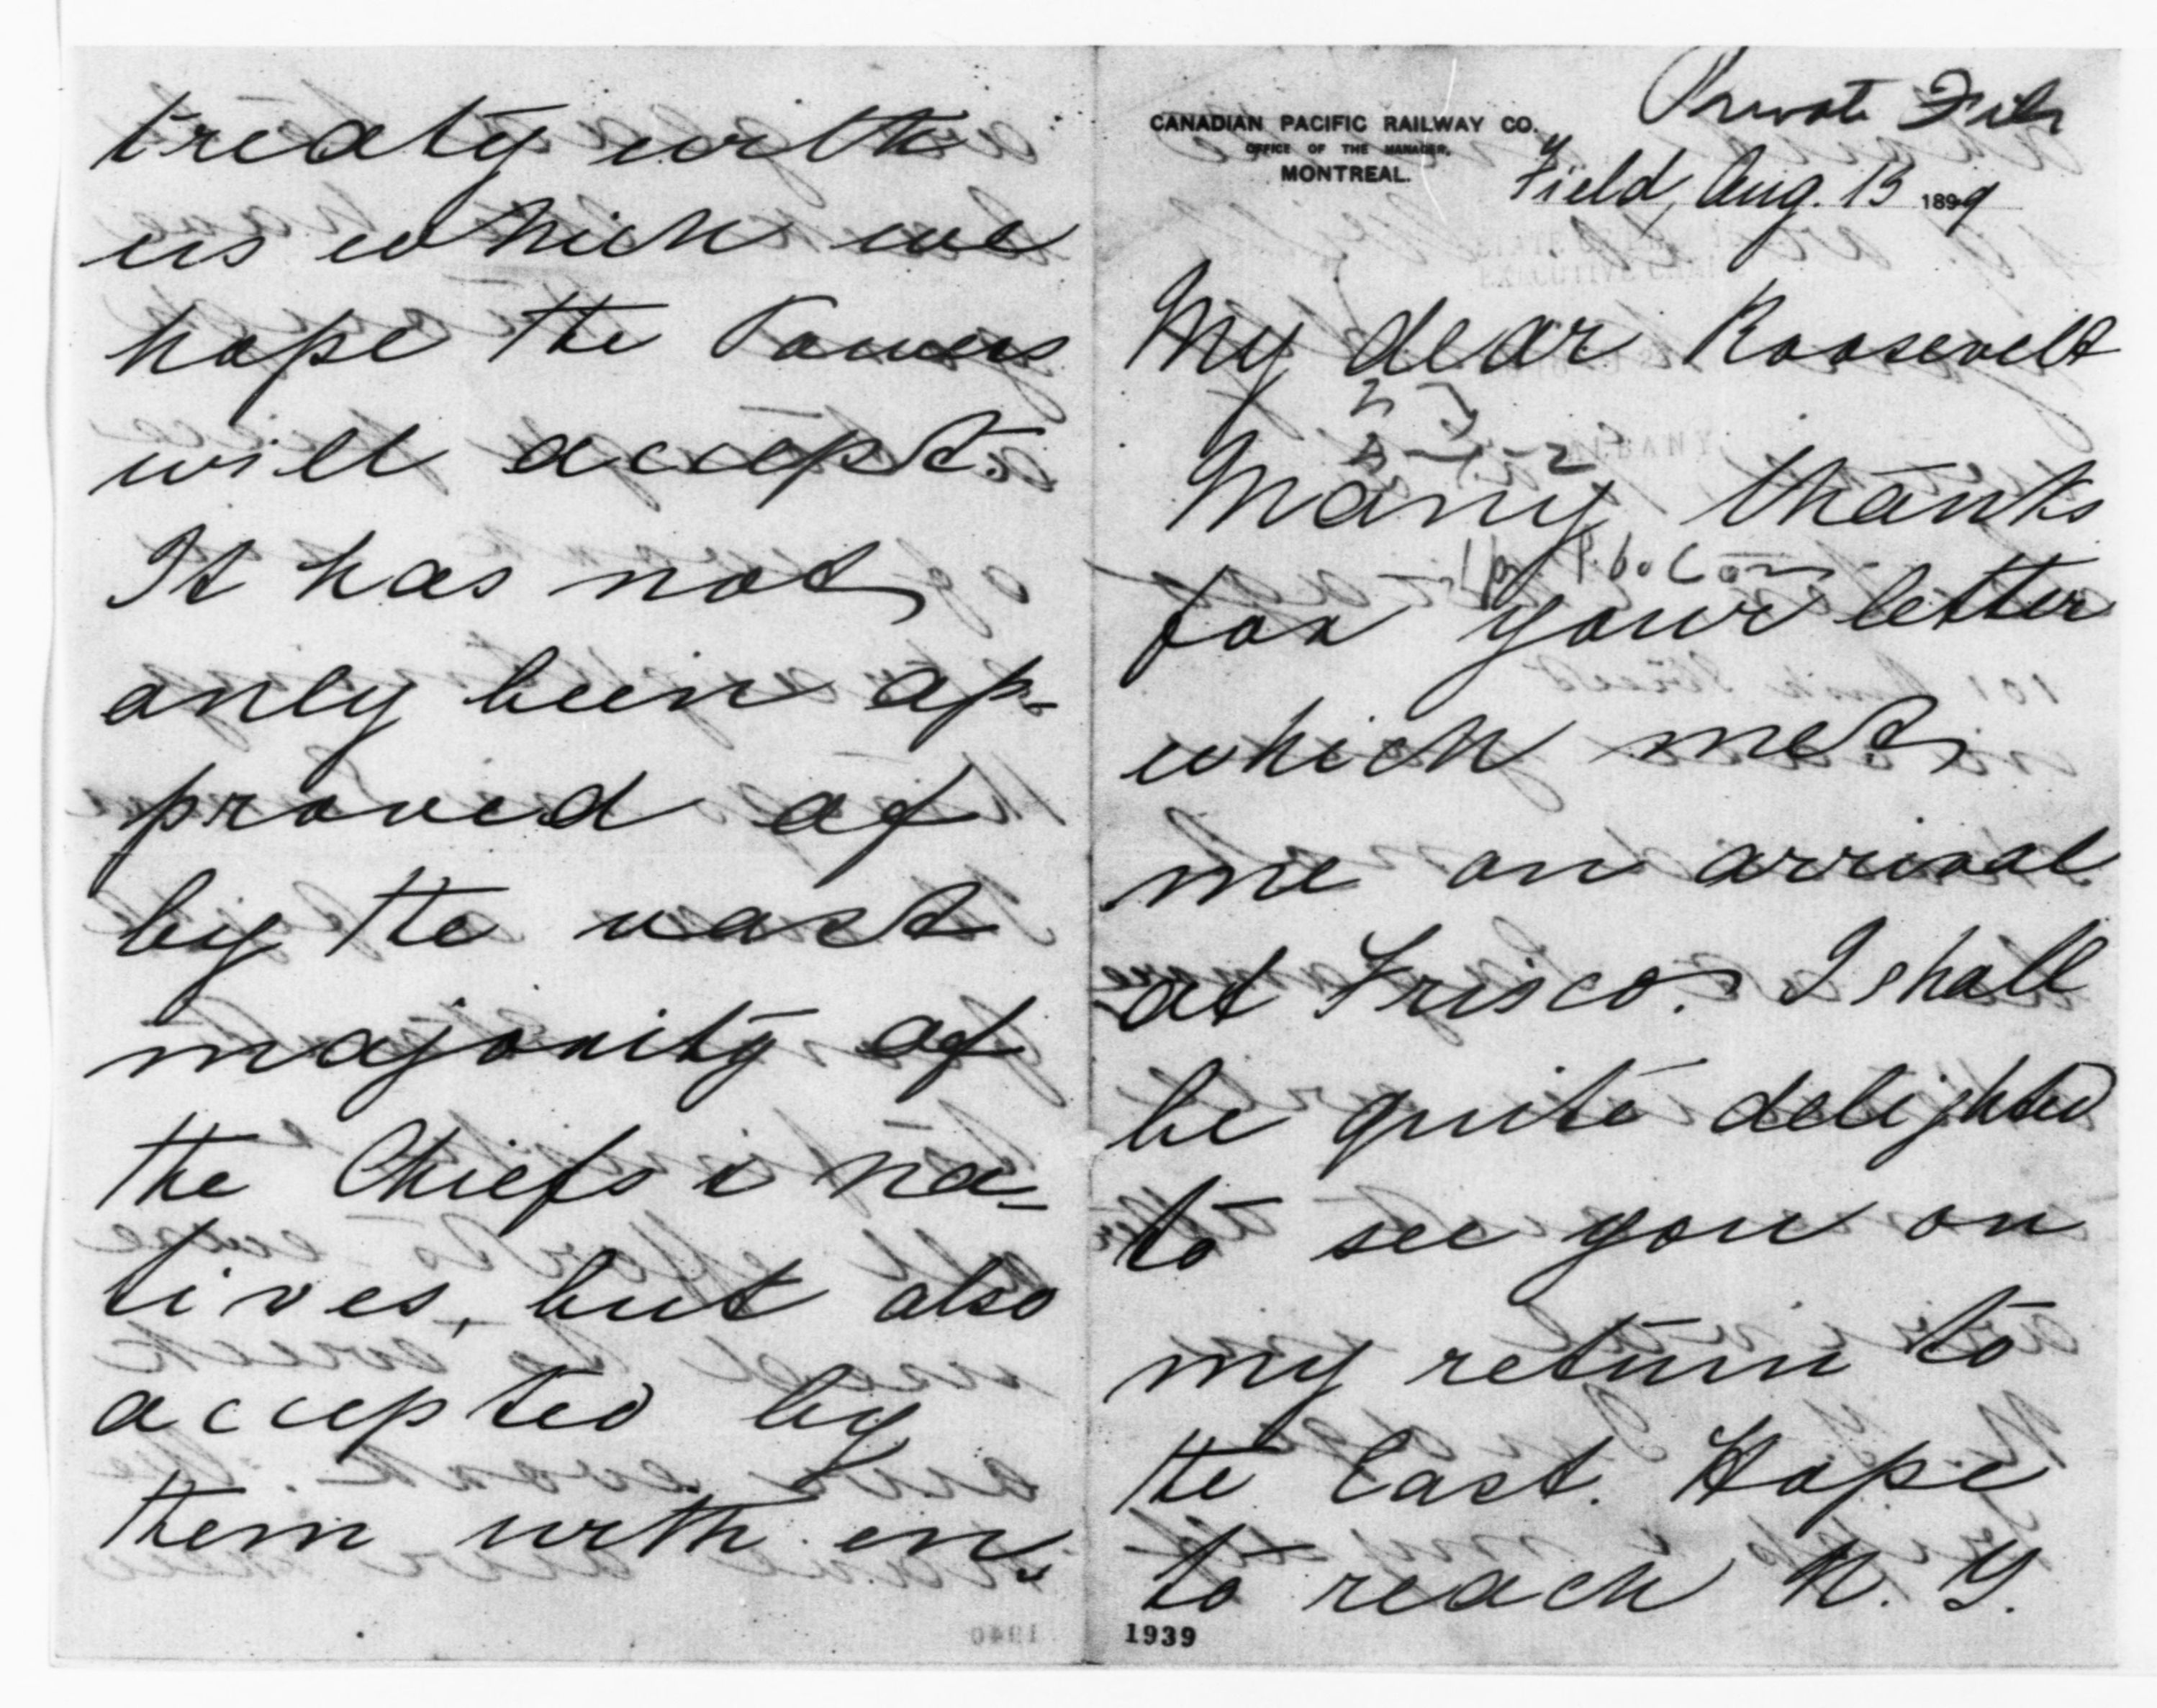 treaty with
us which we
hope the Powers
will accept.
It has not
only been ap-
proved of
by the vast
majority of
the Chiefs & na-
tives, but also
accepted by
them with en-
CANADIAN PACIFIC RAILWAY CO.
OFFICE OF THE MANAGER,
MONTREAL.
Private File
Field, Aug. 13 1899
My dear Roosevelt
Many thanks
for your letter
which met
me on arrival
at Frisco. I shall
be quite delighted
to see you on
my return to
the East. Hope
to reach N. Y.
1939